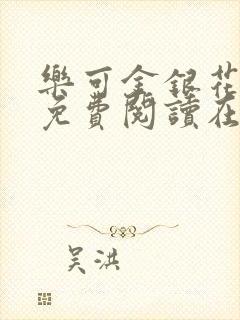 樂可金銀花
免費閱讀在
吴洪